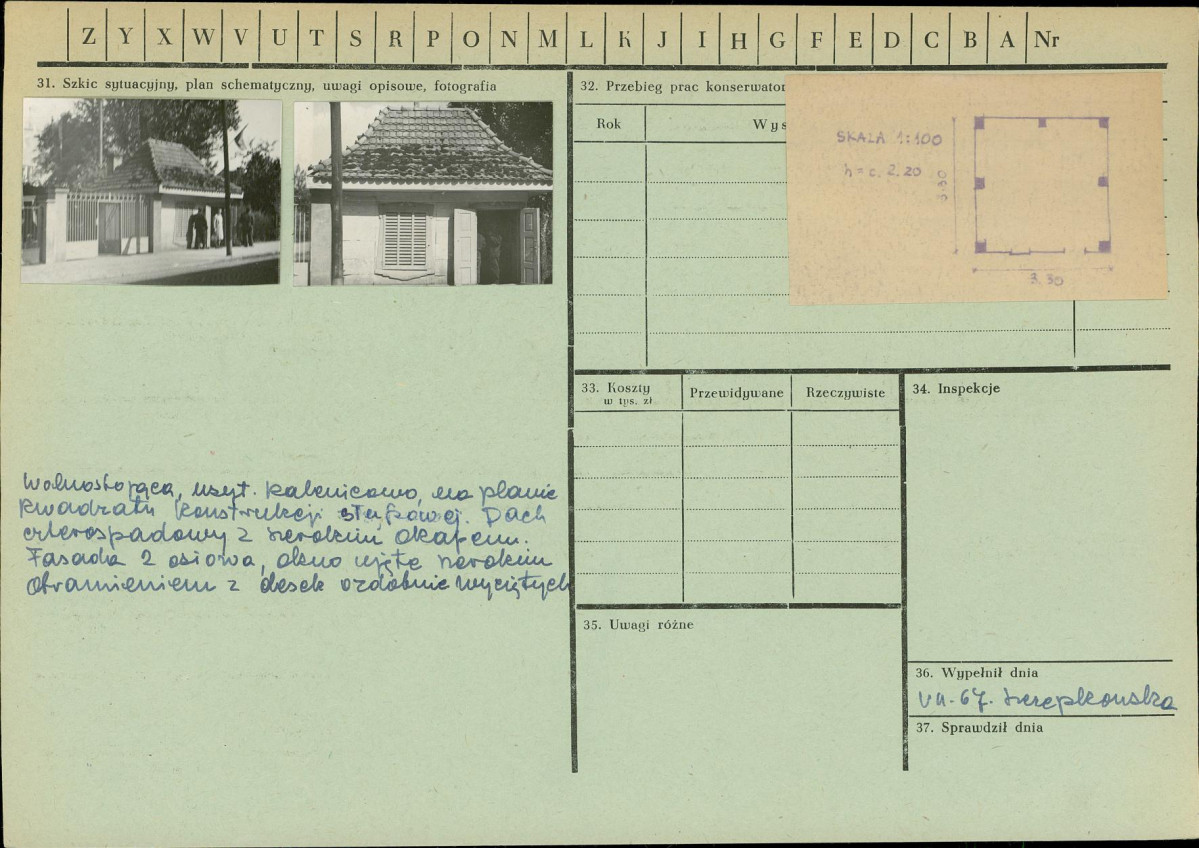 Z Y X W V U T S R P O N M L K J I H G F E D C B A Nr
31. Szkic sytuacyjny, plan schematyczny, uwagi opisowe, fotografia
Wolnostojąca, usyt. kalenicowo, na planie
kwadratu konstrukcji słupowej. Dach
czterospadowy z szerokim okapem.
Fasada 2 osiowa, okno ujęte szerokim
obramieniem z desek ozdobnie wyciętych
32. Przebieg prac konserwator
Rok
Wys
SKALA 1:100
h = c. 2.20
3.30
3.30
33. Koszty
w tys. zł
Przewidywane
Rzeczywiste
34. Inspekcje
35. Uwagi różne
36. Wypełnił dnia
VII. 67.
37. Sprawdził dnia